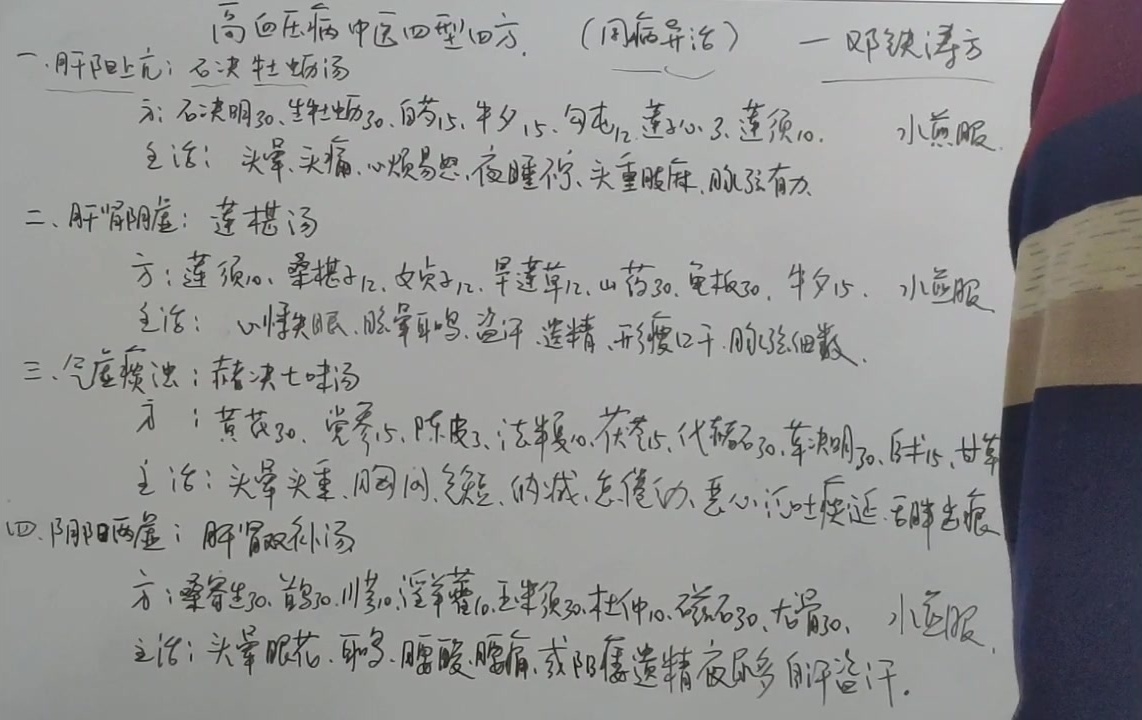 高血压病中医四型四方. (同病异治) — 邓铁涛方
一、肝阳上亢：石决牡蛎汤
方：石决明30、生牡蛎30、白芍15、牛夕15、勾屯12、莲子心3、莲须10. 水煎服.
主治：头晕、头痛、心烦易怒、夜睡不宁、头重肢麻、脉弦有力、
二、肝肾阴虚：莲椹汤
方：莲须10、桑椹子12、女贞子12、旱莲草12、山药30、龟板30、牛夕15. 水煎服
主治：心悸失眠、眩晕耳鸣、盗汗、遗精、形瘦口干、脉弦细数、
三、气虚痰浊：赭决七味汤
方：黄芪30、党参15、陈皮3、法半夏10、茯苓15、代赭石30、草决明30、白术15、甘草
主治：头晕头重、胸闷、气短、纳减、怠倦乏力、恶心泛吐痰涎、舌胖齿痕
四、阴阳两虚：肝肾双补汤
方：桑寄生30、首乌30、川芎10、淫羊藿10、玉米须30、杜仲10、磁石30、龙骨30、 水煎服、
主治：头晕眼花、耳鸣、腰酸、腰痛、或阳痿遗精夜尿多自汗盗汗.